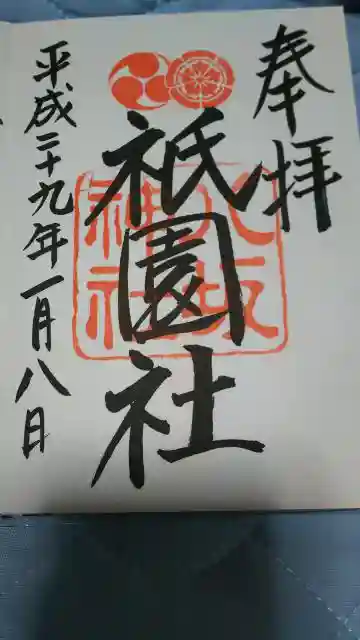 奉拝
祇園社
八坂
神社
平成二十九年一月八日